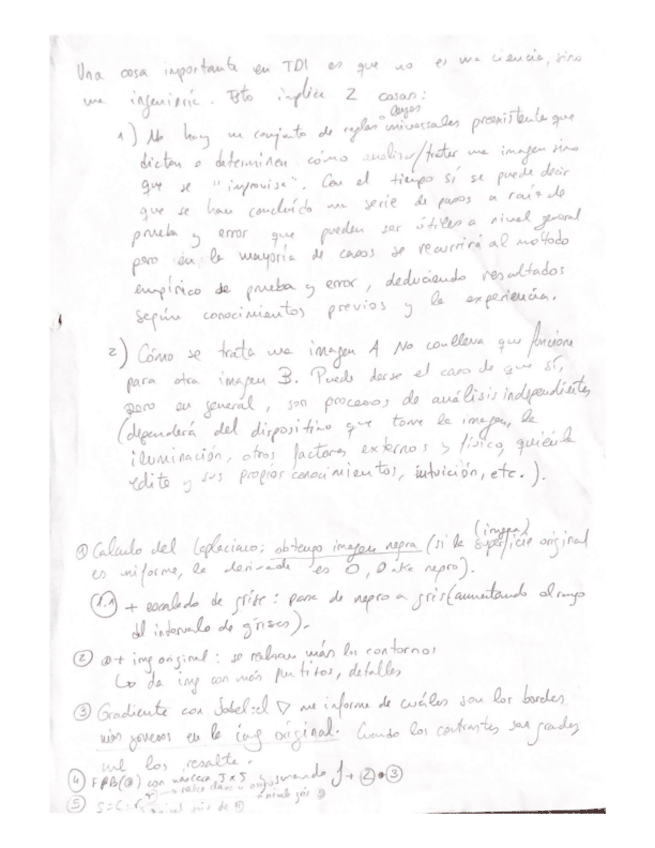 Una cosa importante en TDI es que no es una ciencia, sino
una ingeniería. Esto implica 2 cosas:
1) No hay un conjunto de reglas o leyes universales preexistente que
dictan o determinen cómo analizar/tratar una imagen sino
que se "improvisa". Con el tiempo sí se puede decir
que se han concluido una serie de pasos a raíz de
prueba y error que pueden ser útiles a nivel general
pero en la mayoría de casos se recurrirá al método
empírico de prueba y error, deduciendo resultados
según conocimientos previos y la experiencia.
2) Cómo se trata una imagen A NO conlleva que funcione
para otra imagen B. Puede darse el caso de que sí,
pero en general, son procesos de análisis independientes
(dependerá del dispositivo que tome la imagen, la
iluminación, otros factores externos y físico, quién la
edite y sus propios conocimientos, intuición, etc.).
① Calculo del Laplaciano: obtengo imagen negra (si la superficie (imagen) original
es uniforme, la derivada es 0, 0 ... negro).
1.1 + escalado de grises: pasa de negro a gris (aumentando el rango
del intervalo de grises).
② ... + img original: se realzan más los contornos
↳ da img con más puntitos, detalles
③ Gradiente con Sobel: el ∇ me informa de cuáles son los bordes
más gruesos en la img original. Cuando los contrastes son grandes
me los resalta.
④ FPB(③) con máscara 5x5 y sumando f + ②•③
⑤ S=C·r